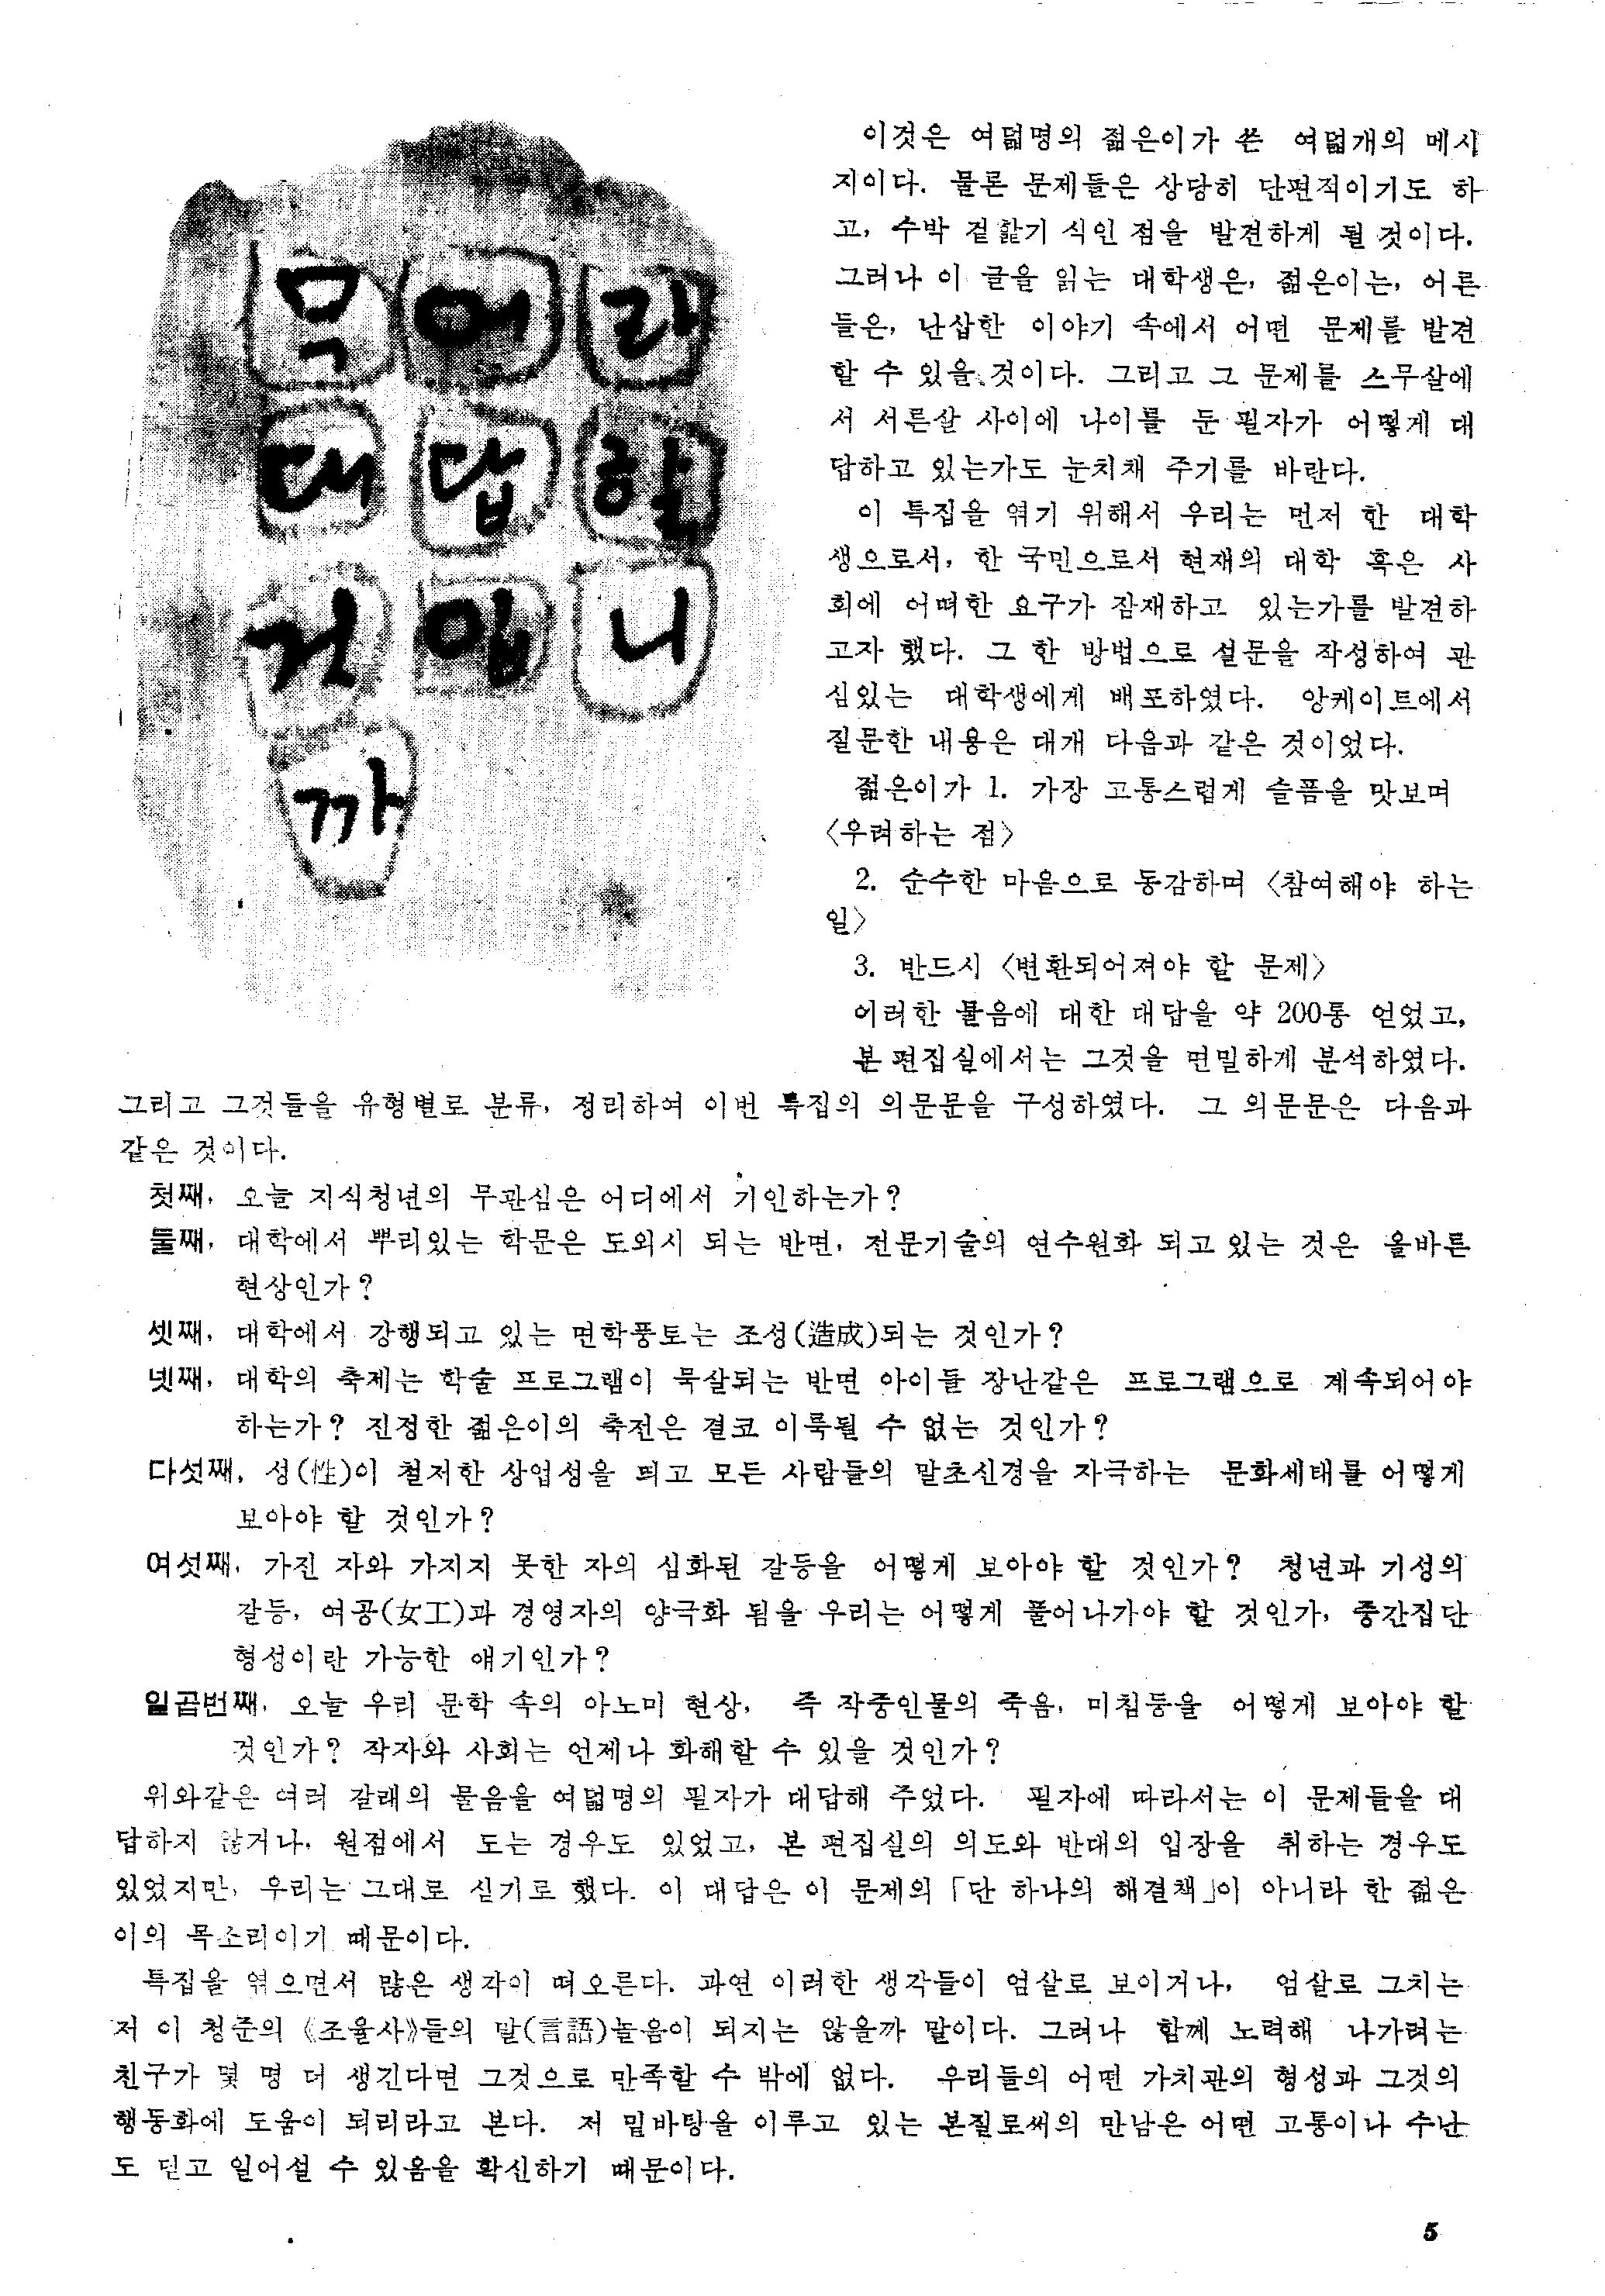 무어라
대답할
것입니
까
이것은 여덟명의 젊은이가 쓴 여덟개의 메시
지이다. 물론 문제들은 상당히 단편적이기도 하
고, 수박 겉핥기 식인 점을 발견하게 될 것이다.
그러나 이 글을 읽는 대학생은, 젊은이는, 어른
들은, 난삽한 이야기 속에서 어떤 문제를 발견
할 수 있을 것이다. 그리고 그 문제를 스무살에
서 서른살 사이에 나이를 둔 필자가 어떻게 대
답하고 있는가도 눈치채 주기를 바란다.
이 특집을 엮기 위해서 우리는 먼저 한 대학
생으로서, 한 국민으로서 현재의 대학 혹은 사
회에 어떠한 요구가 잠재하고 있는가를 발견하
고자 했다. 그 한 방법으로 설문을 작성하여 관
심있는 대학생에게 배포하였다. 앙케이트에서
질문한 내용은 대개 다음과 같은 것이었다.
젊은이가 1. 가장 고통스럽게 슬픔을 맛보며
〈우려하는 점〉
2. 순수한 마음으로 동감하며 〈참여해야 하는
일〉
3. 반드시 〈변환되어져야 할 문제〉
이러한 물음에 대한 대답을 약 200통 얻었고,
본 편집실에서는 그것을 면밀하게 분석하였다.
그리고 그것들을 유형별로 분류, 정리하여 이번 특집의 의문문을 구성하였다. 그 의문문은 다음과
같은 것이다.
첫째, 오늘 지식청년의 무관심은 어디에서 기인하는가?
둘째, 대학에서 뿌리있는 학문은 도외시 되는 반면, 전문기술의 연수원화 되고 있는 것은 올바른
현상인가?
셋째, 대학에서 강행되고 있는 면학풍토는 조성(造成)되는 것인가?
넷째, 대학의 축제는 학술 프로그램이 묵살되는 반면 아이들 장난같은 프로그램으로 계속되어야
하는가? 진정한 젊은이의 축전은 결코 이룩될 수 없는 것인가?
다섯째, 성(性)이 철저한 상업성을 띄고 모든 사람들의 말초신경을 자극하는 문화세태를 어떻게
보아야 할 것인가?
여섯째, 가진 자와 가지지 못한 자의 심화된 갈등을 어떻게 보아야 할 것인가? 청년과 기성의
갈등, 여공(女工)과 경영자의 양극화 됨을 우리는 어떻게 풀어나가야 할 것인가, 중간집단
형성이란 가능한 얘기인가?
일곱번째, 오늘 우리 문학 속의 아노미 현상, 즉 작중인물의 죽음, 미침등을 어떻게 보아야 할
것인가? 작자와 사회는 언제나 화해할 수 있을 것인가?
위와같은 여러 갈래의 물음을 여덟명의 필자가 대답해 주었다. 필자에 따라서는 이 문제들을 대
답하지 않거나, 원점에서 도는 경우도 있었고, 본 편집실의 의도와 반대의 입장을 취하는 경우도
있었지만, 우리는 그대로 싣기로 했다. 이 대답은 이 문제의 「단 하나의 해결책」이 아니라 한 젊은
이의 목소리이기 때문이다.
특집을 엮으면서 많은 생각이 떠오른다. 과연 이러한 생각들이 엄살로 보이거나, 엄살로 그치는
저 이 청준의 《조율사》들의 말(言語)놀음이 되지는 않을까 말이다. 그러나 함께 노력해 나가려는
친구가 몇 명 더 생긴다면 그것으로 만족할 수 밖에 없다. 우리들의 어떤 가치관의 형성과 그것의
행동화에 도움이 되리라고 본다. 저 밑바탕을 이루고 있는 본질로써의 만남은 어떤 고통이나 수난
도 딛고 일어설 수 있음을 확신하기 때문이다.
5